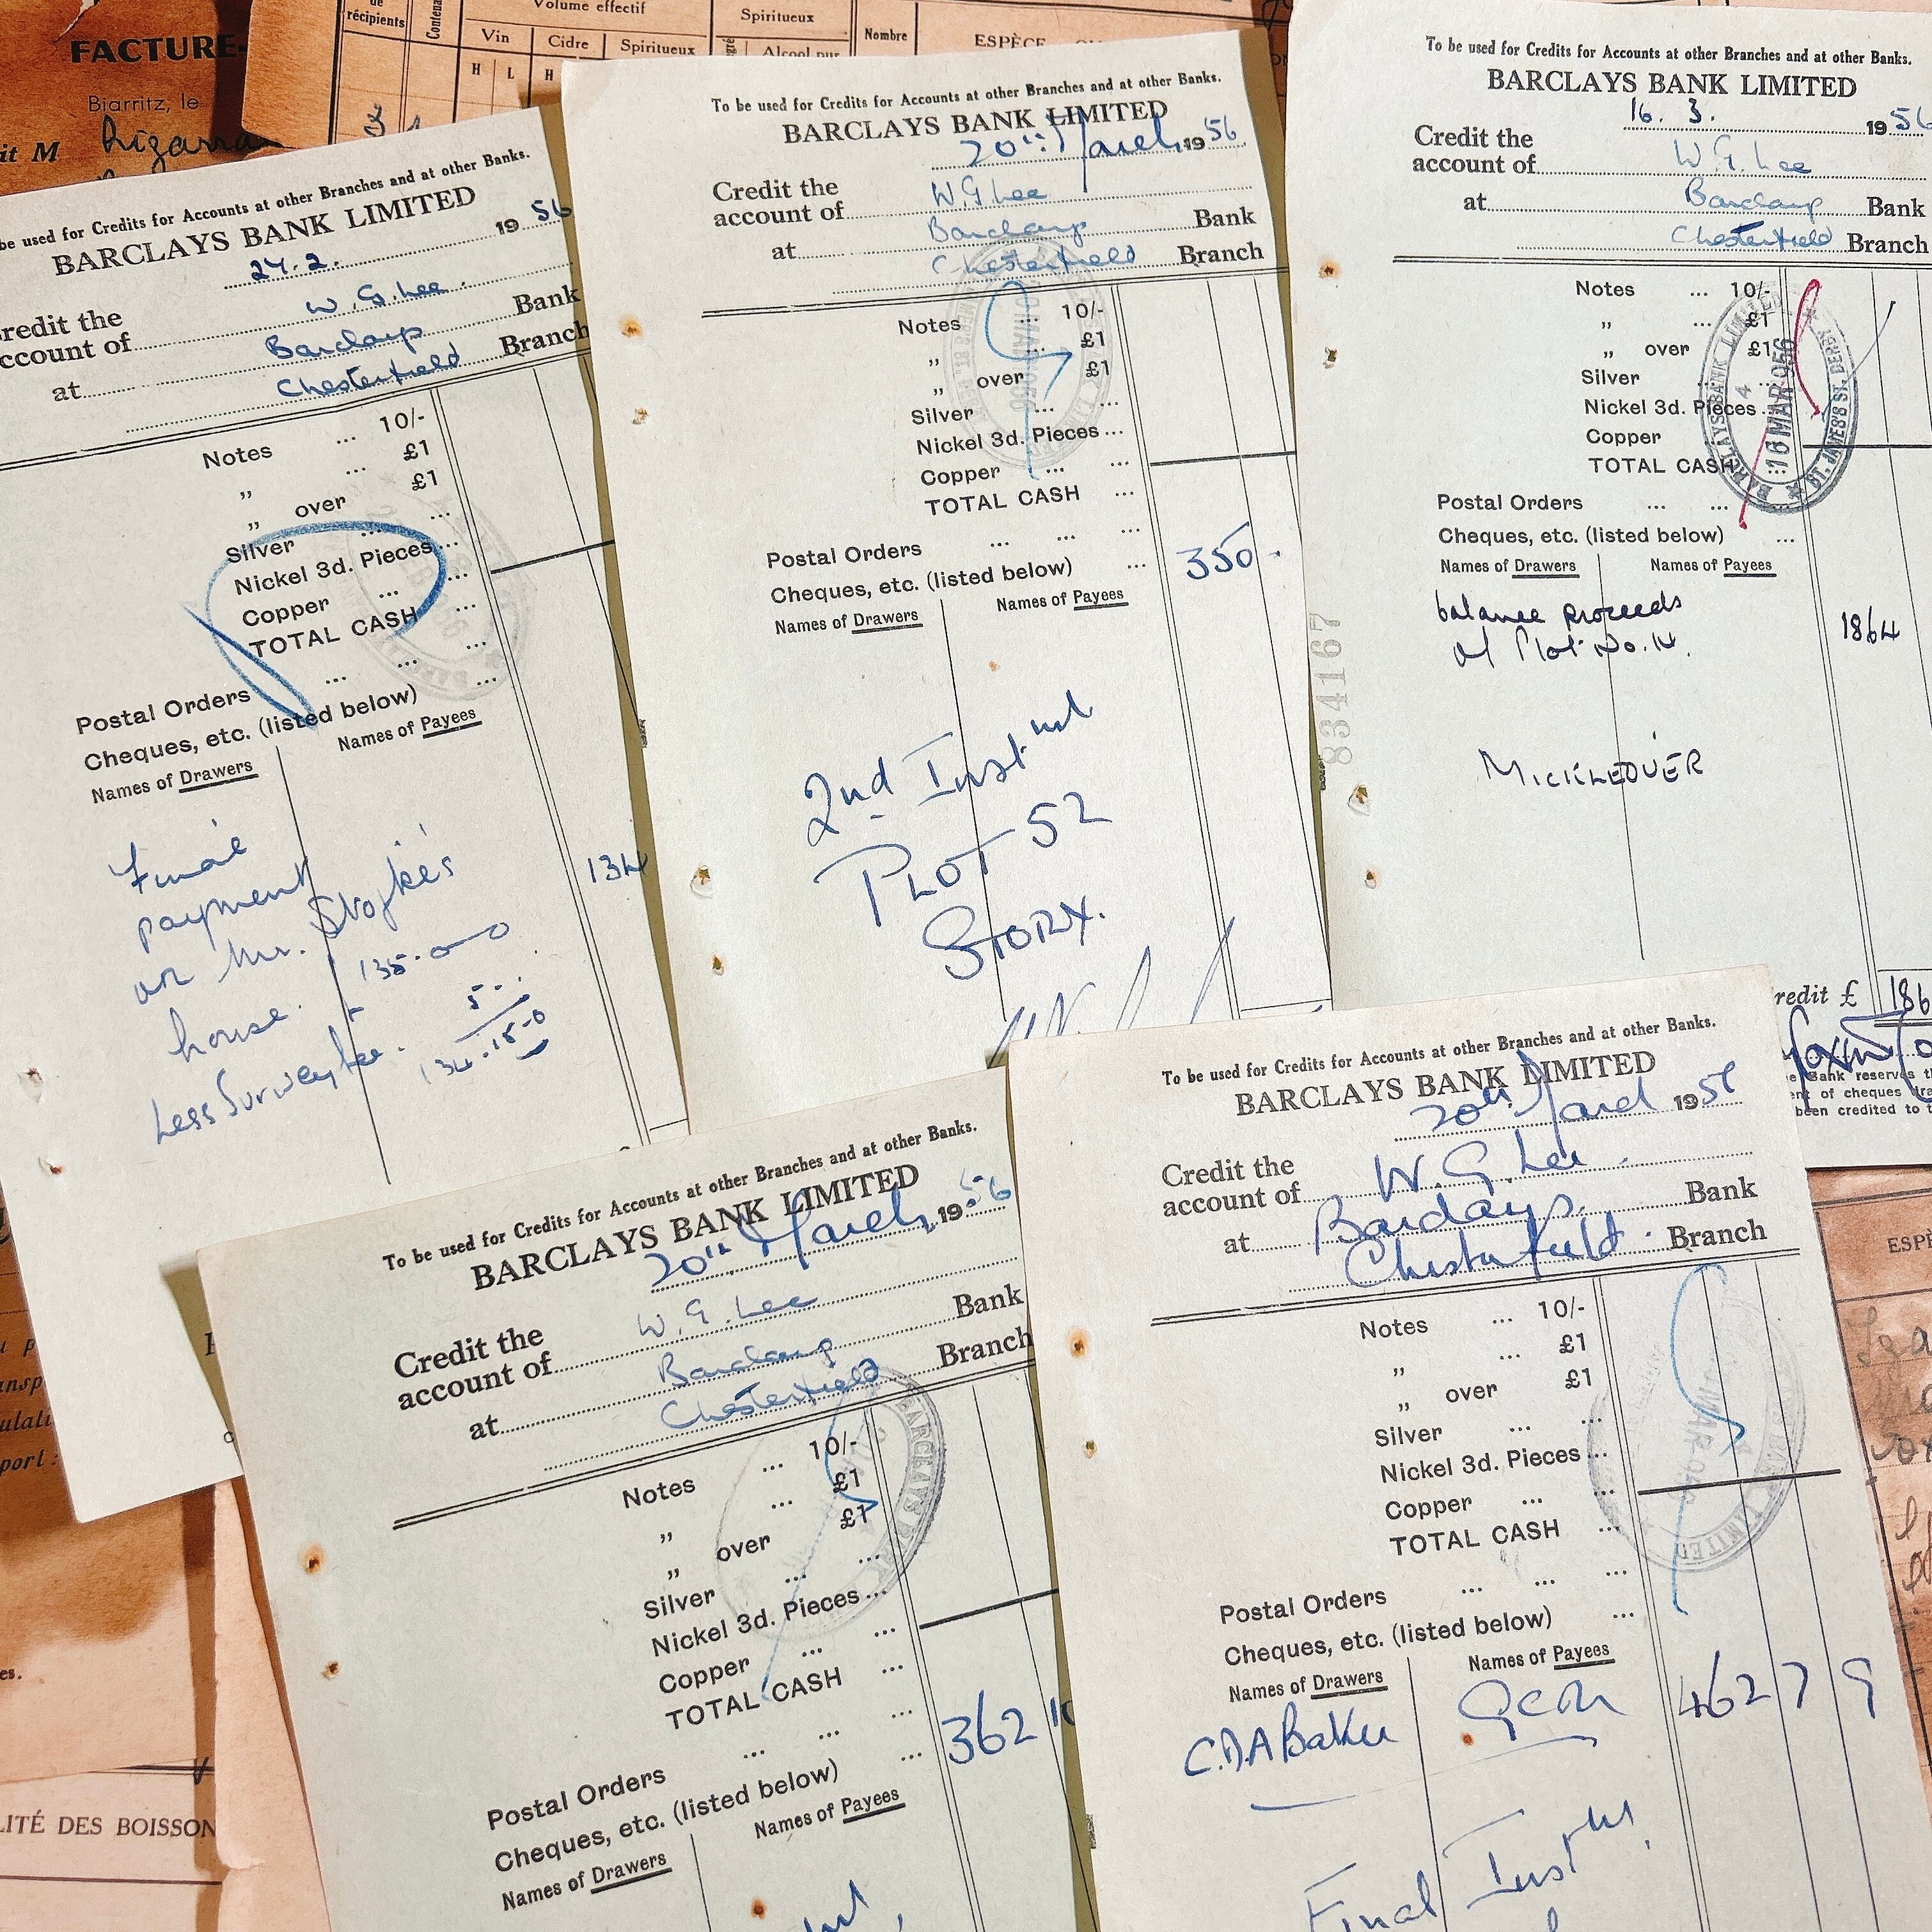 de
récipients
Contena
Volume effectif
Vin
Cidre
Spiritueux
H
L
H
Spiritueux
Alcool pur
Nombre
ESPÈCE
FACTURE-
Biarritz, le
it M
be used for Credits for Accounts at other Branches and at other Banks.
BARCLAYS BANK LIMITED
24.2. 19 56
redit the
ccount of W. G. Lee.
at Barclays Bank
Chesterfield Branch
Notes ... 10/-
„ ... £1
„ over £1
Silver ... ...
Nickel 3d. Pieces...
Copper ... ...
TOTAL CASH ...
Postal Orders ... ... ...
Cheques, etc. (listed below) ...
Names of Drawers Names of Payees
134
Final
payment
on Mr.
house. 135-0-0
Less Survey fee. 5-
134-15-0
To be used for Credits for Accounts at other Branches and at other Banks.
BARCLAYS BANK LIMITED
20th March 19 56
Credit the
account of W. G. Lee
at Barclays Bank
Chesterfield Branch
Notes ... 10/-
„ ... £1
„ over £1
Silver ... ...
Nickel 3d. Pieces...
Copper ... ...
TOTAL CASH ...
Postal Orders ... ... ...
Cheques, etc. (listed below) ... 350 -
Names of Drawers Names of Payees
2nd Inst
PLOT 52
STORY.
To be used for Credits for Accounts at other Branches and at other Banks.
BARCLAYS BANK LIMITED
16. 3. 19 56
Credit the
account of W. G. Lee
at Barclays Bank
Chesterfield Branch
Notes ... 10/-
„ ... £1
„ over £1
Silver
Nickel 3d. Pieces...
Copper
TOTAL CASH ...
BARCLAYS BANK LIMITED
4
16 MAR 956
ST. JAMES'S ST. DERBY
Postal Orders ... ... ...
Cheques, etc. (listed below) ...
Names of Drawers Names of Payees
balance proceeds
of Plot No. 14. 1864
MICKLEOVER
834167
redit £ 186
e Bank reserves t
ent of cheques dra
been credited to
To be used for Credits for Accounts at other Branches and at other Banks.
BARCLAYS BANK LIMITED
20th March, 19 56
Credit the
account of W. G. Lee
at Barclays Bank
Chesterfield Branch
Notes ... 10/-
„ ... £1
„ over £1
Silver ... ...
Nickel 3d. Pieces...
Copper ... ...
TOTAL CASH ...
Postal Orders ... ... ...
Cheques, etc. (listed below) ... 362 10
Names of Drawers Names of Payees
To be used for Credits for Accounts at other Branches and at other Banks.
BARCLAYS BANK LIMITED
20th March 19 56
Credit the
account of W. G. Lee
at Barclays Bank
Chesterfield Branch
Notes ... 10/-
„ ... £1
„ over £1
Silver ... ...
Nickel 3d. Pieces...
Copper ... ...
TOTAL CASH ...
Postal Orders ... ... ...
Cheques, etc. (listed below) ...
Names of Drawers Names of Payees
C.D.A Baker 462 7 9
Final Inst
ESPÈ
ulati
port :
es.
LITÉ DES BOISSON